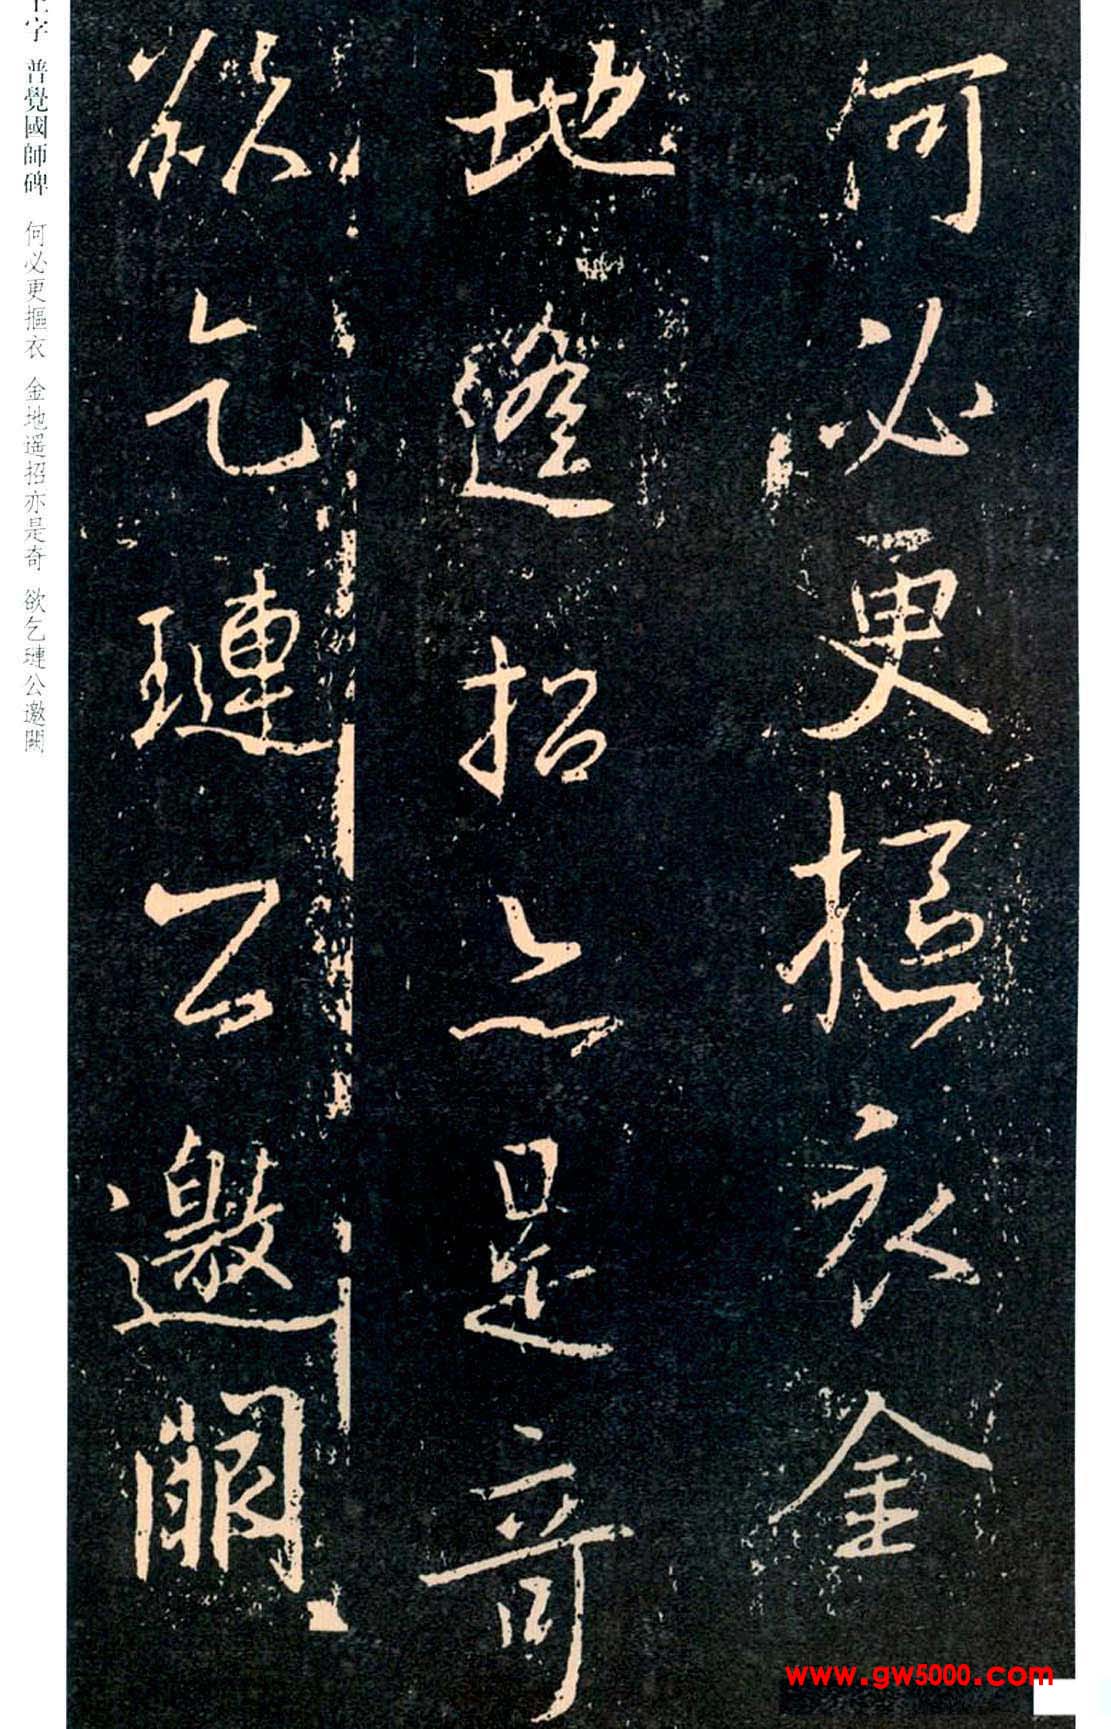 何必更摳衣金
地遥招亦是奇
欲乞璉公邀闕
字 普覺國師碑 何必更摳衣 金地遥招亦是奇 欲乞璉公邀闕
www.gw5000.com